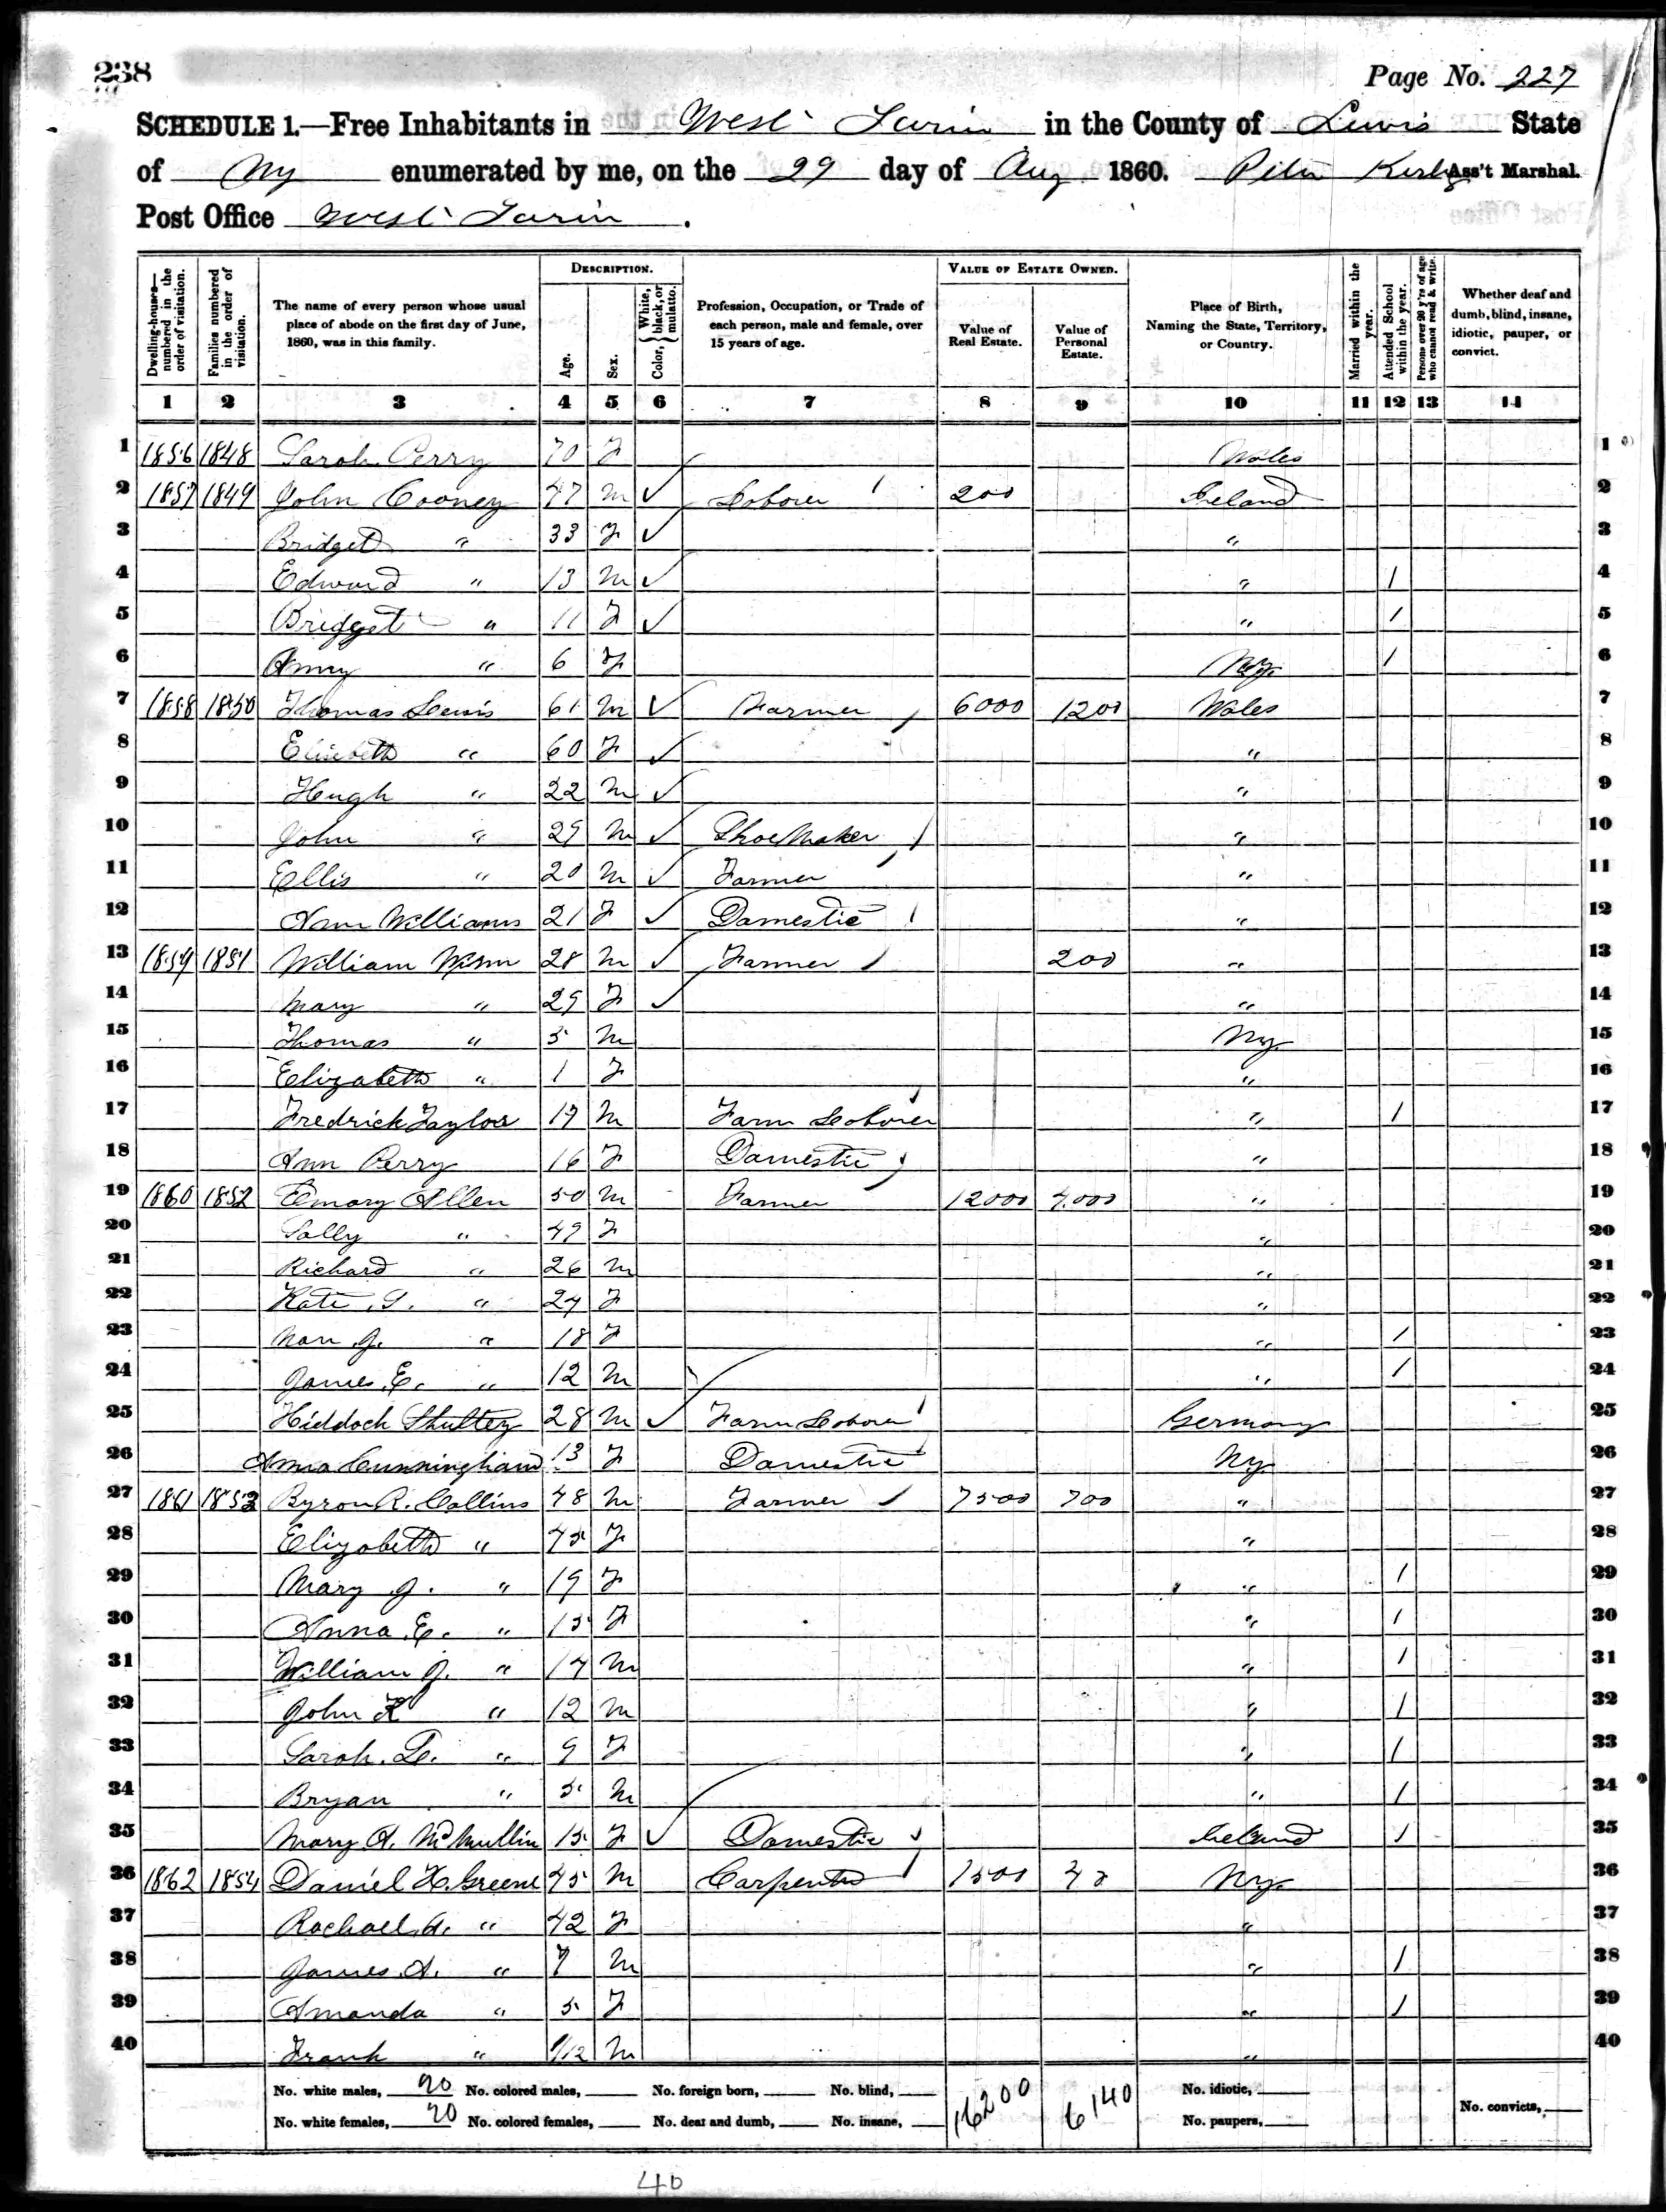 238
Page No. 227
SCHEDULE 1.—Free Inhabitants in West Turin in the County of Lewis State
of Ny enumerated by me, on the 29 day of Aug 1860. Peter Kirby Ass't Marshal.
Post Office West Turin.
Dwelling-houses—numbered in the order of visitation. Families numbered in the order of visitation. The name of every person whose usual place of abode on the first day of June, 1860, was in this family. DESCRIPTION. Age. Sex. Color, { White, black, or mulatto. Profession, Occupation, or Trade of each person, male and female, over 15 years of age. VALUE OF ESTATE OWNED. Value of Real Estate. Value of Personal Estate. Place of Birth, Naming the State, Territory, or Country. Married within the year. Attended School within the year. Persons over 20 y'rs of age who cannot read & write. Whether deaf and dumb, blind, insane, idiotic, pauper, or convict.
1 2 3 4 5 6 7 8 9 10 11 12 13 14
1 1856 1848 Sarah Perry 70 F Wales 1
2 1857 1849 John Cooney 47 M ✓ Laborer 200 Ireland 2
3 Bridget " 33 F ✓ " 3
4 Edward " 13 M ✓ " / 4
5 Bridget " 11 F ✓ " / 5
6 Anny " 6 F Ny. / 6
7 1858 1850 Thomas Lewis 61 M ✓ Farmer 6000 1200 Wales 7
8 Elisebeth " 60 F ✓ " 8
9 Hugh " 22 M ✓ " 9
10 John " 29 M ✓ Shoe Maker " 10
11 Ellis " 20 M ✓ Farmer " 11
12 Ann Williams 21 F ✓ Domestic " 12
13 1859 1851 William 28 M ✓ Farmer 200 " 13
14 Mary " 29 F ✓ " 14
15 Thomas " 5 M Ny. 15
16 Elizabeth " 1 F " 16
17 Fredrick Taylor 17 M Farm Laborer " / 17
18 Ann Perry 16 F Domestic " 18
19 1860 1852 Emory Allen 50 M Farmer 12000 4000 " 19
20 Sally " 49 F " 20
21 Richard " 26 M " 21
22 Kate " 24 F " 22
23 J. " 18 F " / 23
24 James E. " 12 M " / 24
25 28 M ✓ Farm Laborer Germany 25
26 Anna Cunningham 13 F Domestic Ny. 26
27 1861 1853 Byron R. Collins 48 M Farmer 7500 700 " 27
28 Elizabeth " 45 F " 28
29 Mary J. " 19 F " / 29
30 Anna E. " 15 F " / 30
31 William J. " 14 M " / 31
32 John " 12 M " / 32
33 Sarah " 9 F " / 33
34 Bryan " 5 M " / 34
35 Mary A. McMullin 15 F ✓ Domestic Ireland / 35
36 1862 1854 Daniel H. Greene 45 M Carpenter 1500 40 Ny. 36
37 Rachael A. " 42 F " 37
38 James A. " 7 M " / 38
39 Amanda " 5 F " / 39
40 Frank " 9/12 M " 40
No. white males, 20 No. colored males, No. foreign born, No. blind, 16200 6140 No. idiotic,
No. white females, 20 No. colored females, No. deaf and dumb, No. insane, No. paupers, No. convicts,
40